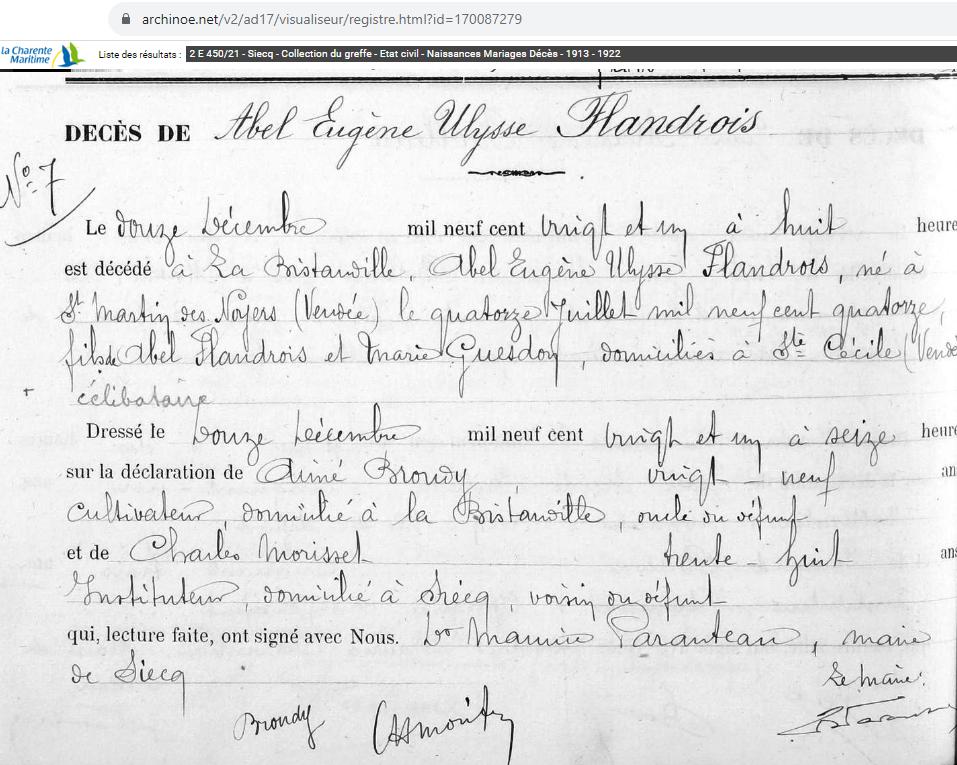 archinoe.net/v2/ad17/visualiseur/registre.html?id=170087279
la Charente Maritime
Liste des résultats : 2 E 450/21 - Siecq - Collection du greffe - Etat civil - Naissances Mariages Décès - 1913 - 1922
DECÈS DE Abel Eugène Ulysse Flandrois
No 7
Le douze Décembre mil neuf cent vingt et un à huit heure
est décédé à La Bistauville, Abel Eugène Ulysse Flandrois, né à
St Martin des Noyers (Vendée) le quatorze Juillet mil neuf cent quatorze,
fils de Abel Flandrois et Marie Guesdon, domiciliés à Ste Cécile (Vendé
+ célibataire
Dressé le Douze Décembre mil neuf cent vingt et un à seize heure
sur la déclaration de Aimé Broudy, vingt-neuf an
cultivateur, domicilié à la Bistauville, oncle du défunt
et de Charles Morisset trente-huit ans
Instituteur, domicilié à Siecq, voisin du défunt
qui, lecture faite, ont signé avec Nous. Dr Maurice Paranteau, maire
de Siecq
Le maire:
Broudy